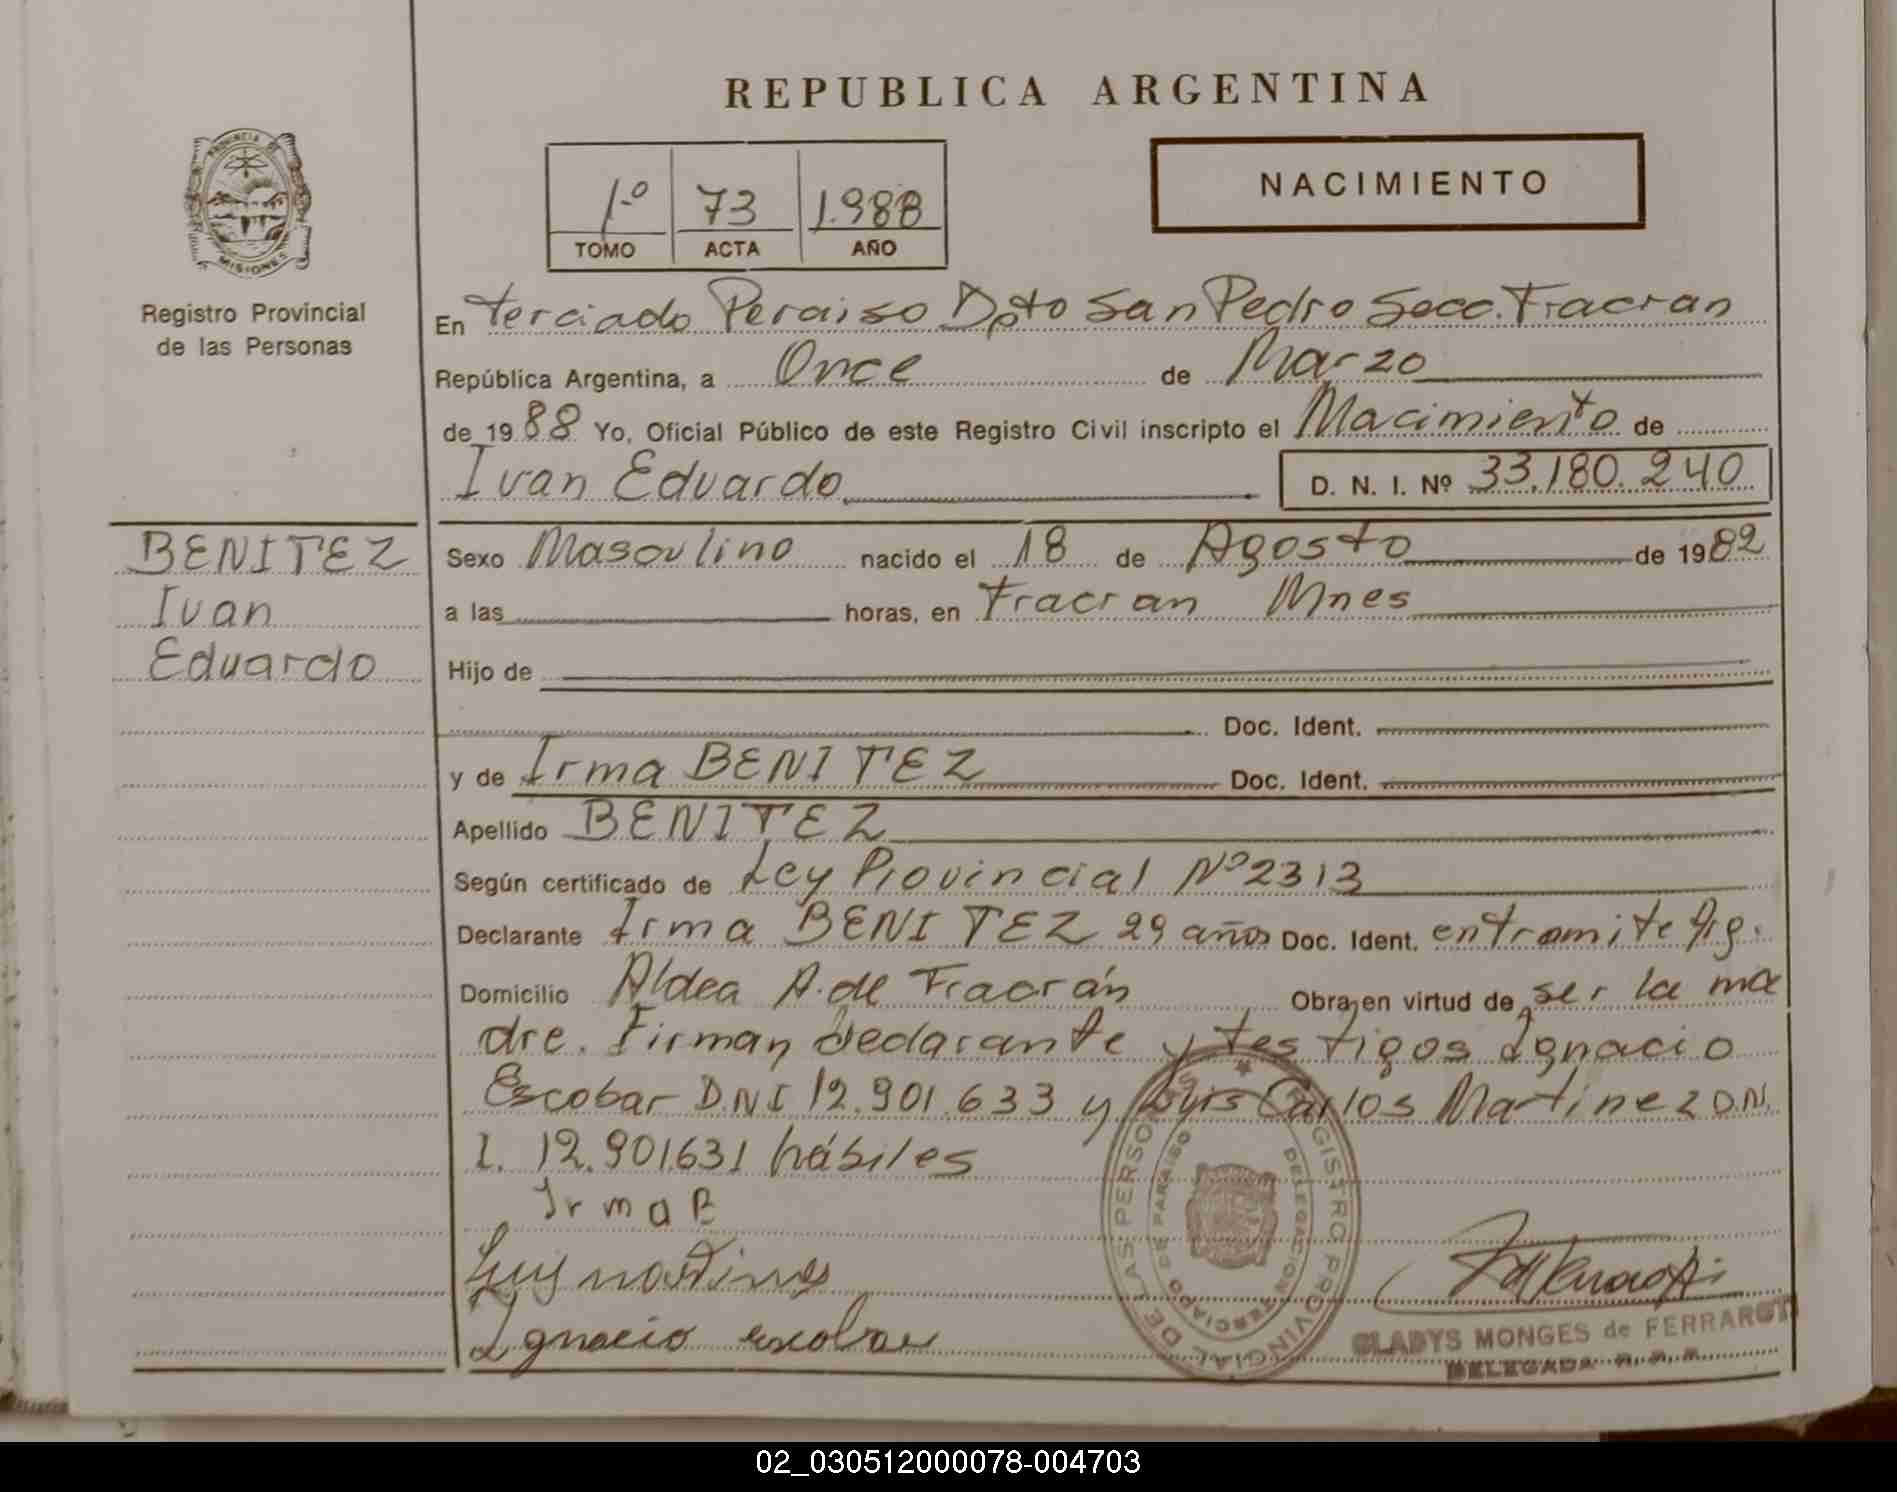 REPUBLICA ARGENTINA
PROVINCIA DE MISIONES
Registro Provincial
de las Personas
1º 73 1.988
TOMO ACTA AÑO
NACIMIENTO
En terciado Peraiso Dpto San Pedro Secc. Fracran
República Argentina, a Once de Marzo
de 1988 Yo, Oficial Público de este Registro Civil inscripto el Nacimiento de
Ivan Eduardo D. N. I. Nº 33.180.240
BENITEZ
Ivan
Eduardo
Sexo Masculino nacido el 18 de Agosto de 1982
a las horas, en Fracran Mnes
Hijo de
Doc. Ident.
y de Irma BENITEZ Doc. Ident.
Apellido BENITEZ
Según certificado de Ley Provincial Nº 2313
Declarante Irma BENITEZ 29 años Doc. Ident. en tramite Arg.
Domicilio Aldea A. de Fracrán Obra en virtud de ser la ma
dre. Firman declarante y testigos Ignacio
Escobar D.N.I 12.901.633 y Luis Carlos Martinez D.N.
I. 12.901631 hábiles
Irma B
Luis martines
Ignacio escobar
REGISTRO PROVINCIAL DE LAS PERSONAS
DELEGACION TERCIADO DE PARAISO
GLADYS MONGES de FERRAROTTI
DELEGADA R. P. P.
02_030512000078-004703